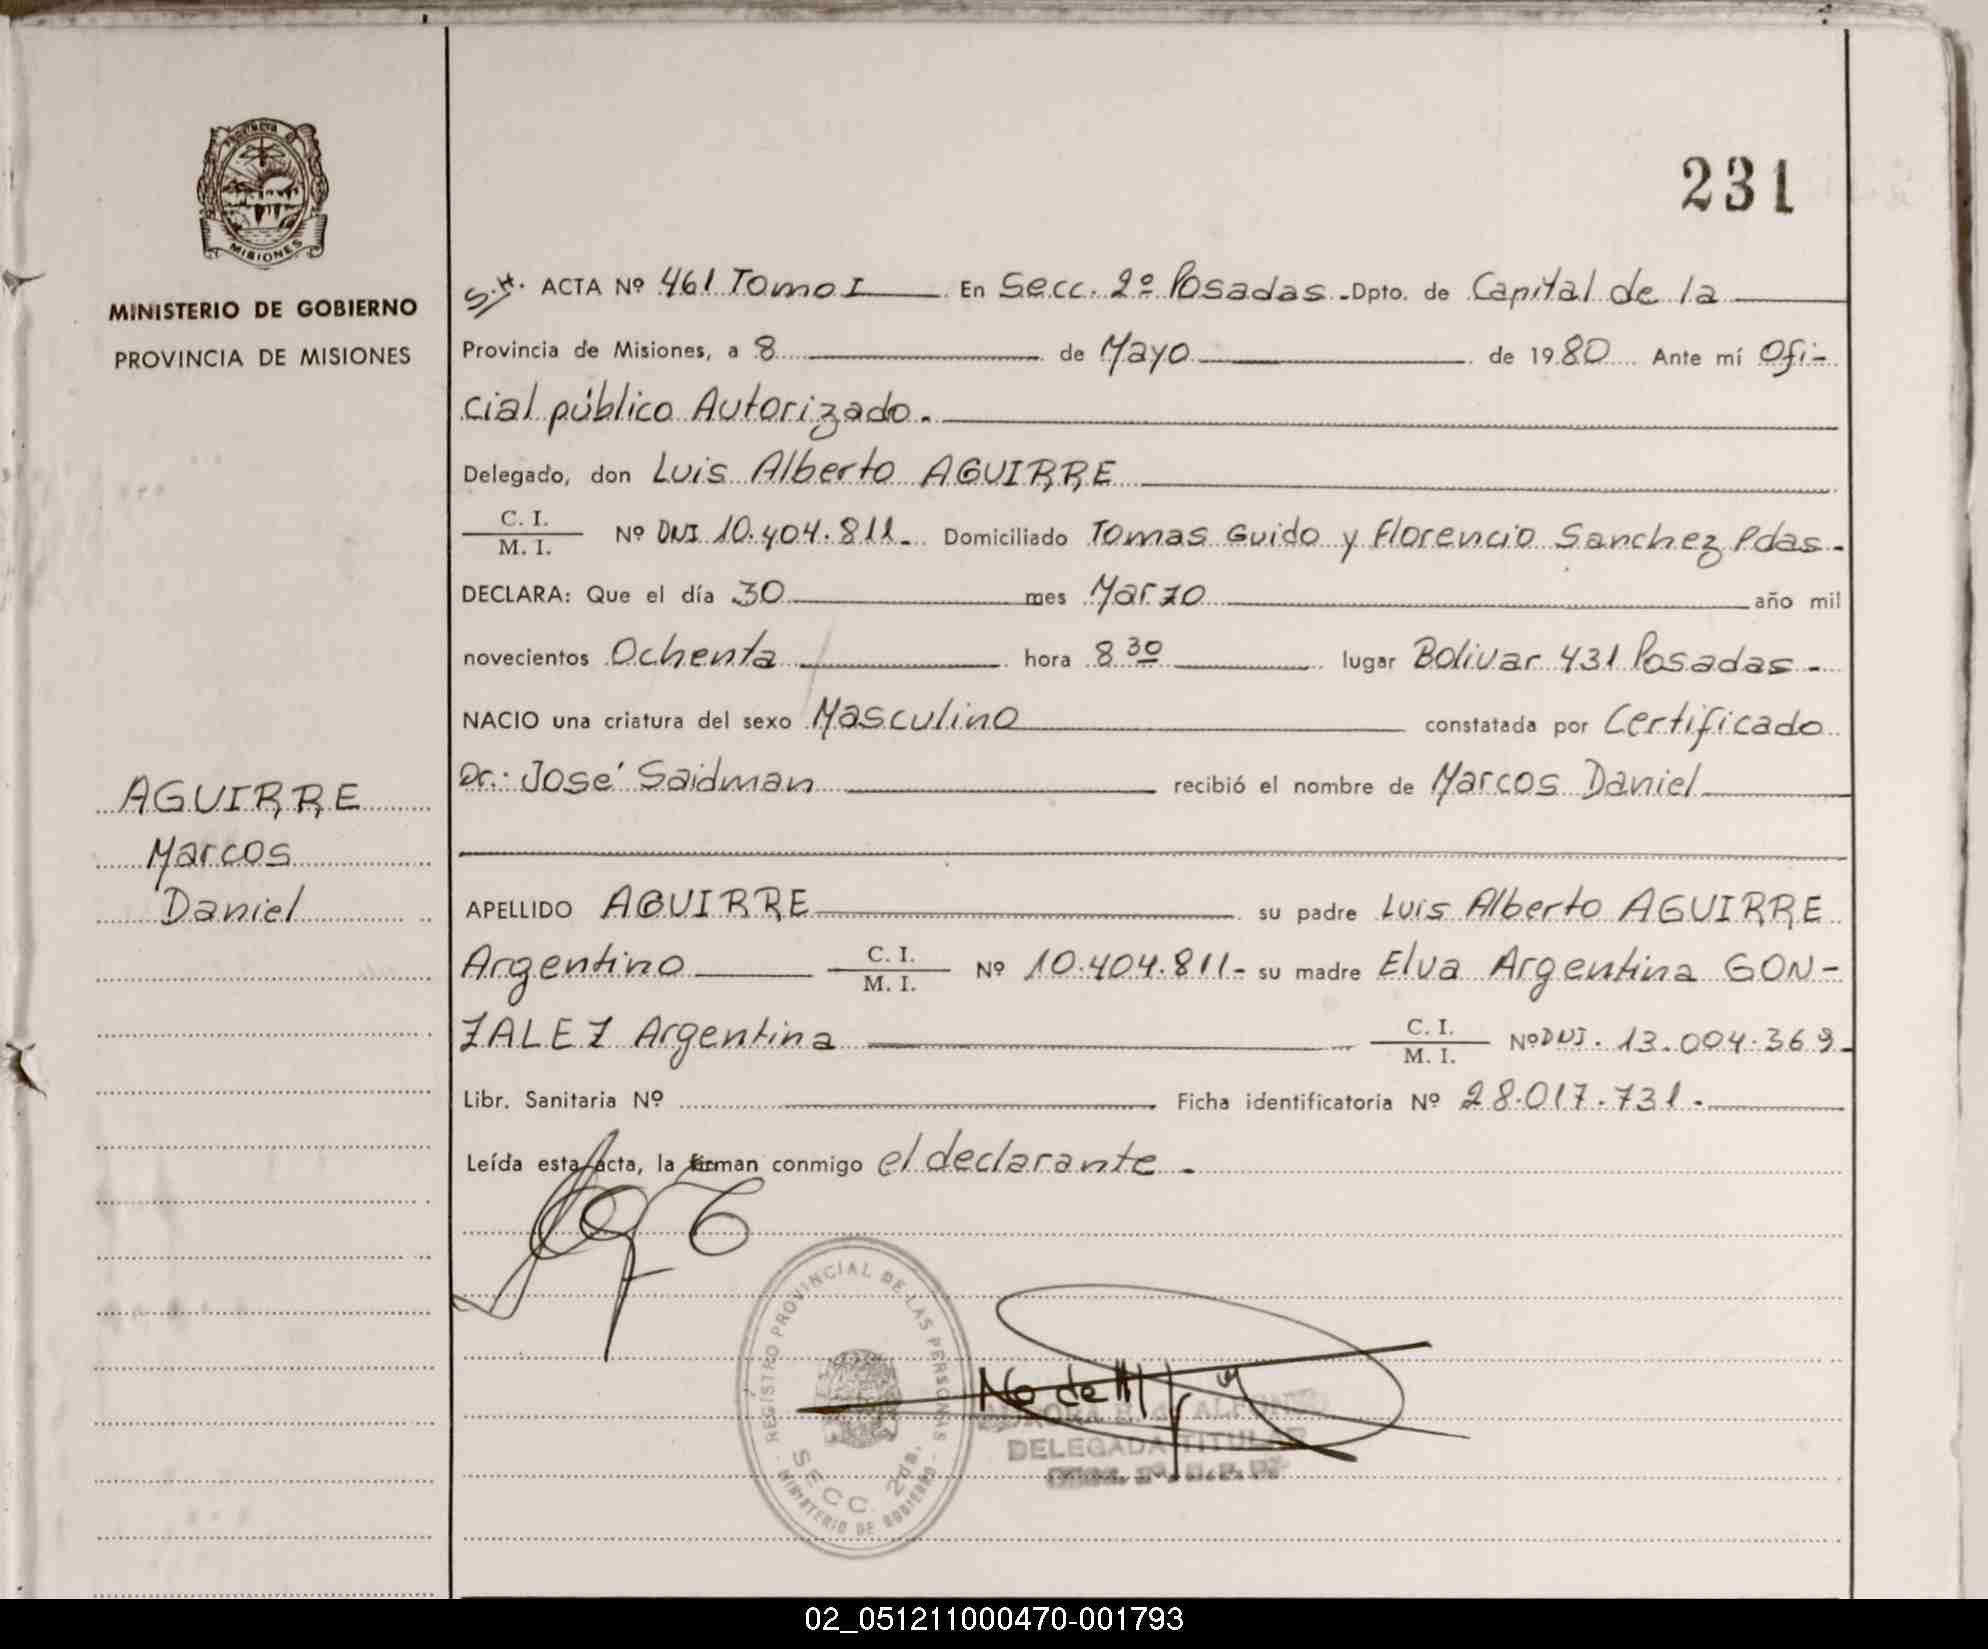 231
MISIONES
MINISTERIO DE GOBIERNO
PROVINCIA DE MISIONES
S.H. ACTA Nº 461 Tomo I En Secc. 2º Posadas - Dpto. de Capital de la
Provincia de Misiones, a 8 de Mayo de 1980 Ante mí Ofi-
cial público Autorizado.
Delegado, don Luis Alberto AGUIRRE
C. I.
M. I. Nº DNI 10.404.811. Domiciliado Tomas Guido y Florencio Sanchez Pdas.
DECLARA: Que el día 30 mes Marzo año mil
novecientos Ochenta hora 8 30 lugar Bolivar 431 Posadas -
NACIO una criatura del sexo Masculino constatada por Certificado
Dr.: José Saidman recibió el nombre de Marcos Daniel
AGUIRRE
Marcos
Daniel
APELLIDO AGUIRRE su padre Luis Alberto AGUIRRE
Argentino C. I.
M. I. Nº 10.404.811- su madre Elva Argentina GON-
ZALEZ Argentina C. I.
M. I. Nº DNI. 13.004.369-
Libr. Sanitaria Nº Ficha identificatoria Nº 28.017.731.-
Leída esta acta, la firman conmigo el declarante -
REGISTRO PROVINCIAL DE LAS PERSONAS
SECC. 2da.
MINISTERIO DE GOBIERNO
DELEGADA TITULAR
02_051211000470-001793